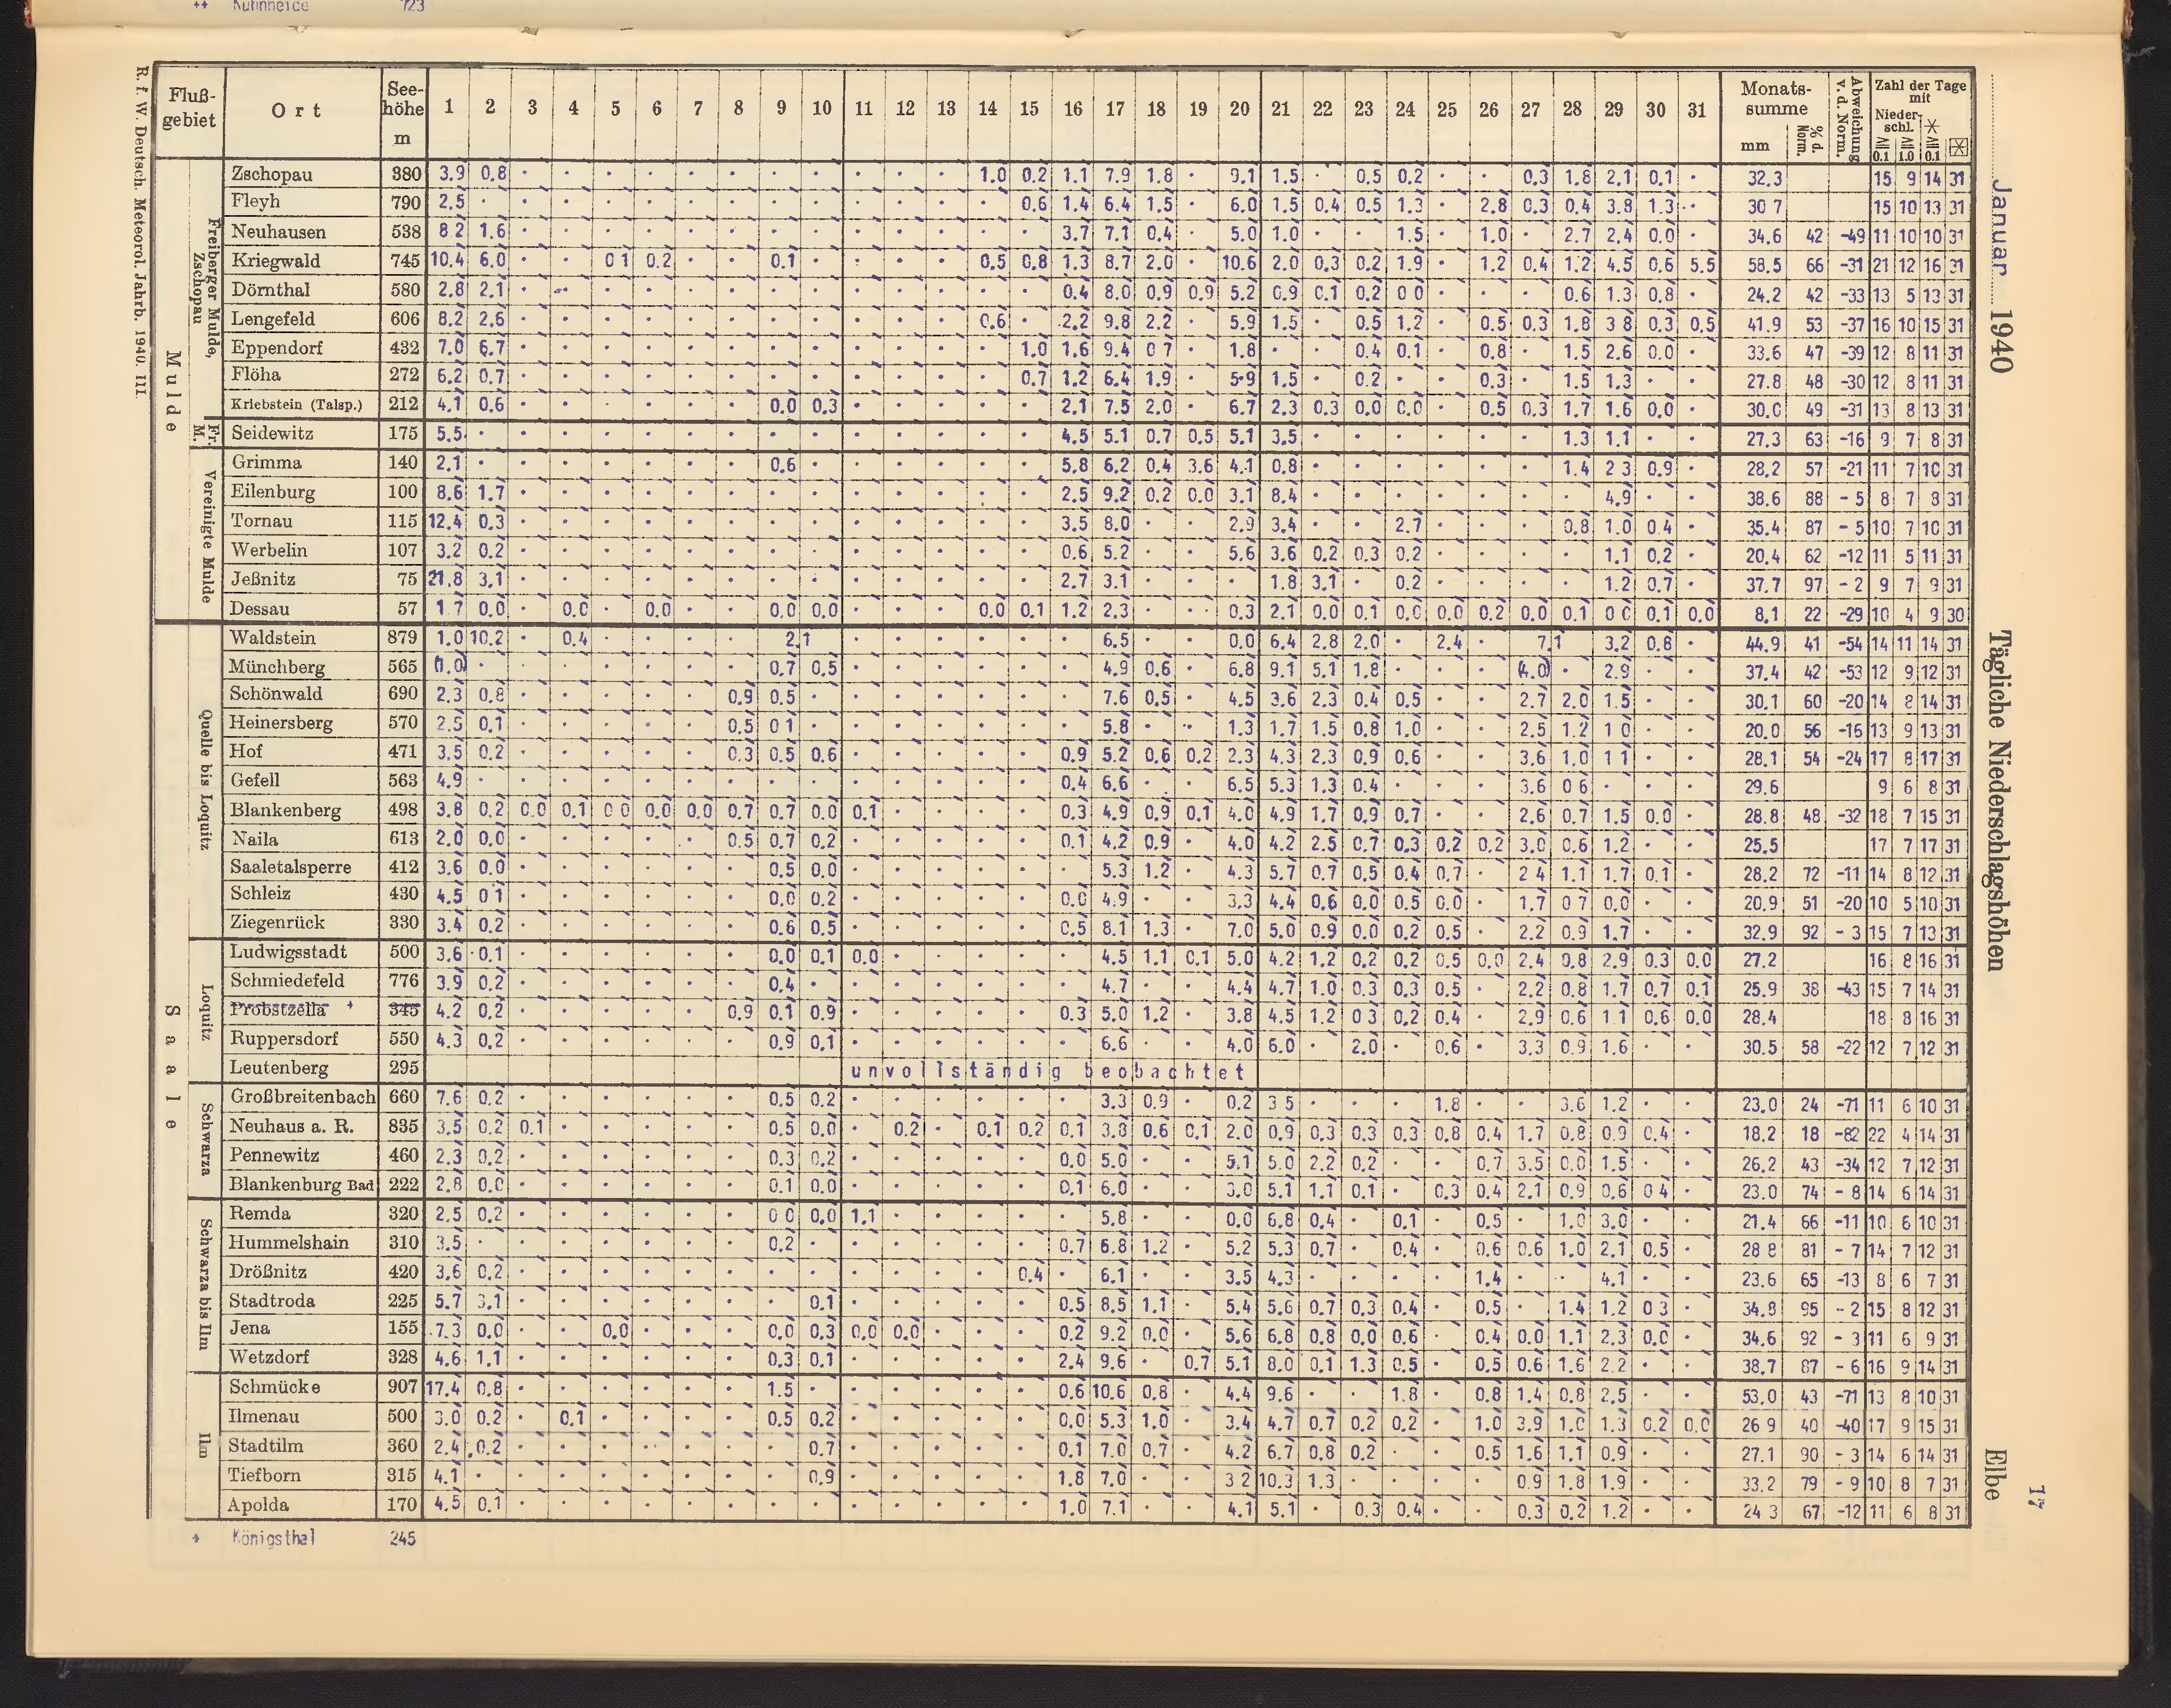 ++ Kühnheide 723
Januar 1940 Tägliche Niederschlagshöhen Elbe 17
R. f. W. Deutsch. Meteorol. Jahrb. 1940. III.
Fluß-gebiet Ort Seehöhe m 1 2 3 4 5 6 7 8 9 10 11 12 13 14 15 16 17 18 19 20 21 22 23 24 25 26 27 28 29 30 31 Monatssumme mm % d. Norm. Abweichung v. d. Norm. Zahl der Tage mit Niederschl. ≧0.1 ≧1.0 ≧0.1
Mulde
Freiberger Mulde, Zschopau
Zschopau 380 3.9 0.8 · · · · · · · · · · · 1.0 0.2 1.1 7.9 1.8 · 9.1 1.5 · 0.5 0.2 · · 0.3 1.8 2.1 0.1 · 32.3 15 9 14 31
Fleyh 790 2.5 · · · · · · · · · · · · · 0.6 1.4 6.4 1.5 · 6.0 1.5 0.4 0.5 1.3 · 2.8 0.3 0.4 3.8 1.3 · 30 7 15 10 13 31
Neuhausen 538 8.2 1.6 · · · · · · · · · · · · · 3.7 7.1 0.4 · 5.0 1.0 · · 1.5 · 1.0 · 2.7 2.4 0.0 · 34.6 42 -49 11 10 10 31
Kriegwald 745 10.4 6.0 · · 0 1 0.2 · · 0.1 · · · · 0.5 0.8 1.3 8.7 2.0 · 10.6 2.0 0.3 0.2 1.9 · 1.2 0.4 1.2 4.5 0.6 5.5 58.5 66 -31 21 12 16 31
Dörnthal 580 2.8 2.1 · · · · · · · · · · · · · 0.4 8.0 0.9 0.9 5.2 0.9 0.1 0.2 0 0 · · · 0.6 1.3 0.8 · 24.2 42 -33 13 5 13 31
Lengefeld 606 8.2 2.6 · · · · · · · · · · · 0.6 · 2.2 9.8 2.2 · 5.9 1.5 · 0.5 1.2 · 0.5 0.3 1.8 3 8 0.3 0.5 41.9 53 -37 16 10 15 31
Eppendorf 432 7.0 6.7 · · · · · · · · · · · · 1.0 1.6 9.4 0 7 · 1.8 · · 0.4 0.1 · 0.8 · 1.5 2.6 0.0 · 33.6 47 -39 12 8 11 31
Flöha 272 6.2 0.7 · · · · · · · · · · · · 0.7 1.2 6.4 1.9 · 5.9 1.5 · 0.2 · · 0.3 · 1.5 1.3 · · 27.8 48 -30 12 8 11 31
Kriebstein (Talsp.) 212 4.1 0.6 · · · · · · 0.0 0.3 · · · · · 2.1 7.5 2.0 · 6.7 2.3 0.3 0.0 0.0 · 0.5 0.3 1.7 1.6 0.0 · 30.0 49 -31 13 8 13 31
Fr. M.
Seidewitz 175 5.5 · · · · · · · · · · · · · · 4.5 5.1 0.7 0.5 5.1 3.5 · · · · · · 1.3 1.1 · · 27.3 63 -16 9 7 8 31
Vereinigte Mulde
Grimma 140 2.1 · · · · · · · 0.6 · · · · · · 5.8 6.2 0.4 3.6 4.1 0.8 · · · · · · 1.4 2 3 0.9 · 28.2 57 -21 11 7 10 31
Eilenburg 100 8.6 1.7 · · · · · · · · · · · · · 2.5 9.2 0.2 0.0 3.1 8.4 · · · · · · · 4.9 · · 38.6 88 - 5 8 7 8 31
Tornau 115 12.4 0.3 · · · · · · · · · · · · · 3.5 8.0 · · 2.9 3.4 · · 2.7 · · · 0.8 1.0 0.4 · 35.4 87 - 5 10 7 10 31
Werbelin 107 3.2 0.2 · · · · · · · · · · · · · 0.6 5.2 · · 5.6 3.6 0.2 0.3 0.2 · · · · 1.1 0.2 · 20.4 62 -12 11 5 11 31
Jeßnitz 75 21.8 3.1 · · · · · · · · · · · · · 2.7 3.1 · · · 1.8 3.1 · 0.2 · · · · 1.2 0.7 · 37.7 97 - 2 9 7 9 31
Dessau 57 1 7 0.0 · 0.0 · 0.0 · · 0.0 0.0 · · · 0.0 0.1 1.2 2.3 · · 0.3 2.1 0.0 0.1 0.0 0.0 0.2 0.0 0.1 0 0 0.1 0.0 8.1 22 -29 10 4 9 30
Saale
Quelle bis Loquitz
Waldstein 879 1.0 10.2 · 0.4 · · · · 2.1 · · · · · · 6.5 · · 0.0 6.4 2.8 2.0 · 2.4 · 7.1 3.2 0.8 · 44.9 41 -54 14 11 14 31
Münchberg 565 (1.0) · · · · · · · 0.7 0.5 · · · · · · 4.9 0.6 · 6.8 9.1 5.1 1.8 · · · (4.0) · 2.9 · · 37.4 42 -53 12 9 12 31
Schönwald 690 2.3 0.8 · · · · · 0.9 0.5 · · · · · · · 7.6 0.5 · 4.5 3.6 2.3 0.4 0.5 · · 2.7 2.0 1.5 · · 30.1 60 -20 14 8 14 31
Heinersberg 570 2.5 0.1 · · · · · 0.5 0 1 · · · · · · · 5.8 · · 1.3 1.7 1.5 0.8 1.0 · · 2.5 1.2 1 0 · · 20.0 56 -16 13 9 13 31
Hof 471 3.5 0.2 · · · · · 0.3 0.5 0.6 · · · · · 0.9 5.2 0.6 0.2 2.3 4.3 2.3 0.9 0.6 · · 3.6 1.0 1 1 · · 28.1 54 -24 17 8 17 31
Gefell 563 4.9 · · · · · · · · · · · · · · 0.4 6.6 · · 6.5 5.3 1.3 0.4 · · · 3.6 0 6 · · · 29.6 9 6 8 31
Blankenberg 498 3.8 0.2 0.0 0.1 0 0 0.0 0.0 0.7 0.7 0.0 0.1 · · · · 0.3 4.9 0.9 0.1 4.0 4.9 1.7 0.9 0.7 · · 2.6 0.7 1.5 0.0 · 28.8 48 -32 18 7 15 31
Naila 613 2.0 0.0 · · · · · 0.5 0.7 0.2 · · · · · 0.1 4.2 0.9 · 4.0 4.2 2.5 0.7 0.3 0.2 0.2 3.0 0.6 1.2 · · 25.5 17 7 17 31
Saaletalsperre 412 3.6 0.0 · · · · · · 0.5 0.0 · · · · · · 5.3 1.2 · 4.3 5.7 0.7 0.5 0.4 0.7 · 2 4 1.1 1.7 0.1 · 28.2 72 -11 14 8 12 31
Schleiz 430 4.5 0 1 · · · · · · 0.0 0.2 · · · · · 0.0 4.9 · · 3.3 4.4 0.6 0.0 0.5 0.0 · 1.7 0 7 0.0 · · 20.9 51 -20 10 5 10 31
Ziegenrück 330 3.4 0.2 · · · · · · 0.6 0.5 · · · · · 0.5 8.1 1.3 · 7.0 5.0 0.9 0.0 0.2 0.5 · 2.2 0.9 1.7 · · 32.9 92 - 3 15 7 13 31
Loquitz
Ludwigsstadt 500 3.6 0.1 · · · · · · 0.0 0.1 0.0 · · · · · 4.5 1.1 0.1 5.0 4.2 1.2 0.2 0.2 0.5 0.0 2.4 0.8 2.9 0.3 0.0 27.2 16 8 16 31
Schmiedefeld 776 3.9 0.2 · · · · · · 0.4 · · · · · · · 4.7 · · 4.4 4.7 1.0 0.3 0.3 0.5 · 2.2 0.8 1.7 0.7 0.1 25.9 38 -43 15 7 14 31
Probstzella + 345 4.2 0.2 · · · · · 0.9 0.1 0.9 · · · · · 0.3 5.0 1.2 · 3.8 4.5 1.2 0 3 0.2 0.4 · 2.9 0.6 1.1 0.6 0.0 28.4 18 8 16 31
Ruppersdorf 550 4.3 0.2 · · · · · · 0.9 0.1 · · · · · · 6.6 · · 4.0 6.0 · 2.0 · 0.6 · 3.3 0.9 1.6 · · 30.5 58 -22 12 7 12 31
Leutenberg 295 unvollständig beobachtet
Schwarza
Großbreitenbach 660 7.6 0.2 · · · · · · 0.5 0.2 · · · · · · 3.3 0.9 · 0.2 3 5 · · · 1.8 · · 3.6 1.2 · · 23.0 24 -71 11 6 10 31
Neuhaus a. R. 835 3.5 0.2 0.1 · · · · · 0.5 0.0 · 0.2 · 0.1 0.2 0.1 3.8 0.6 0.1 2.0 0.9 0.3 0.3 0.3 0.8 0.4 1.7 0.8 0.9 0.4 · 18.2 18 -82 22 4 14 31
Pennewitz 460 2.3 0.2 · · · · · · 0.3 0.2 · · · · · 0.0 5.0 · · 5.1 5.0 2.2 0.2 · · 0.7 3.5 0.0 1.5 · · 26.2 43 -34 12 7 12 31
Blankenburg Bad 222 2.8 0.0 · · · · · · 0.1 0.0 · · · · · 0.1 6.0 · · 3.0 5.1 1.1 0.1 · 0.3 0.4 2.1 0.9 0.6 0 4 · 23.0 74 - 8 14 6 14 31
Schwarza bis Ilm
Remda 320 2.5 0.2 · · · · · · 0 0 0.0 1.1 · · · · · 5.8 · · 0.0 6.8 0.4 · 0.1 · 0.5 · 1.0 3.0 · · 21.4 66 -11 10 6 10 31
Hummelshain 310 3.5 · · · · · · · 0.2 · · · · · · 0.7 6.8 1.2 · 5.2 5.3 0.7 · 0.4 · 0.6 0.6 1.0 2.1 0.5 · 28 8 81 - 7 14 7 12 31
Drößnitz 420 3.6 0.2 · · · · · · · · · · · · 0.4 · 6.1 · · 3.5 4.3 · · · · 1.4 · · 4.1 · · 23.6 65 -13 8 6 7 31
Stadtroda 225 5.7 3.1 · · · · · · · 0.1 · · · · · 0.5 8.5 1.1 · 5.4 5.6 0.7 0.3 0.4 · 0.5 · 1.4 1.2 0 3 · 34.8 95 - 2 15 8 12 31
Jena 155 7.3 0.0 · · 0.0 · · · 0.0 0.3 0.0 0.0 · · · 0.2 9.2 0.0 · 5.6 6.8 0.8 0.0 0.6 · 0.4 0.0 1.1 2.3 0.0 · 34.6 92 - 3 11 6 9 31
Wetzdorf 328 4.6 1.1 · · · · · · 0.3 0.1 · · · · · 2.4 9.6 · 0.7 5.1 8.0 0.1 1.3 0.5 · 0.5 0.6 1.6 2.2 · · 38.7 87 - 6 16 9 14 31
Ilm
Schmücke 907 17.4 0.8 · · · · · · 1.5 · · · · · · 0.6 10.6 0.8 · 4.4 9.6 · · 1.8 · 0.8 1.4 0.8 2.5 · · 53.0 43 -71 13 8 10 31
Ilmenau 500 3.0 0.2 · 0.1 · · · · 0.5 0.2 · · · · · 0.0 5.3 1.0 · 3.4 4.7 0.7 0.2 0.2 · 1.0 3.9 1.0 1.3 0.2 0.0 26 9 40 -40 17 9 15 31
Stadtilm 360 2.4 0.2 · · · · · · · 0.7 · · · · · 0.1 7.0 0.7 · 4.2 6.7 0.8 0.2 · · 0.5 1.6 1.1 0.9 · · 27.1 90 - 3 14 6 14 31
Tiefborn 315 4.1 · · · · · · · · 0.9 · · · · · 1.8 7.0 · · 3 2 10.3 1.3 · · · · 0.9 1.8 1.9 · · 33.2 79 - 9 10 8 7 31
Apolda 170 4.5 0.1 · · · · · · · · · · · · · 1.0 7.1 · · 4.1 5.1 · 0.3 0.4 · · 0.3 0.2 1.2 · · 24 3 67 -12 11 6 8 31
+ Königsthal 245